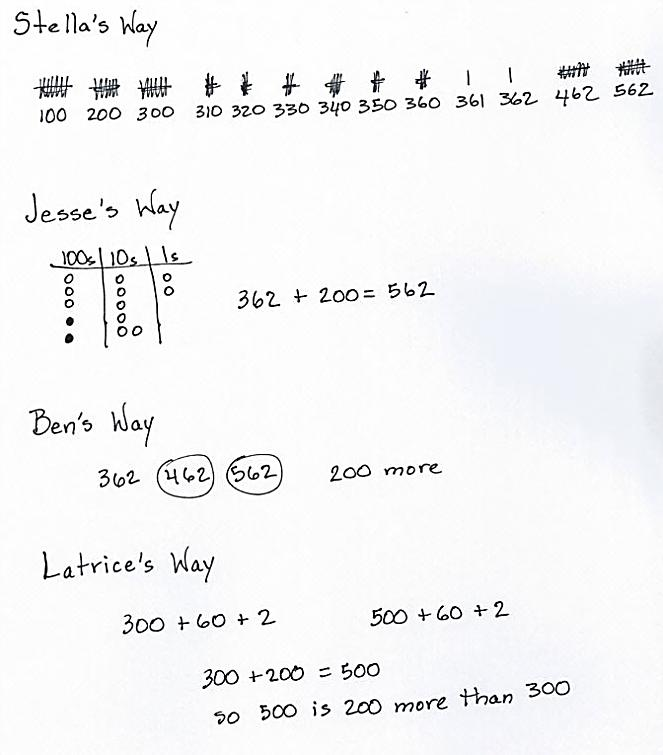 Stella's Way
100 200 300 310 320 330 340 350 360 361 362 462 562
Jesse's Way
100s 10s 1s
362 + 200 = 562
Ben's Way
362 462 562 200 more
Latrice's Way
300 + 60 + 2 500 + 60 + 2
300 + 200 = 500
so 500 is 200 more than 300